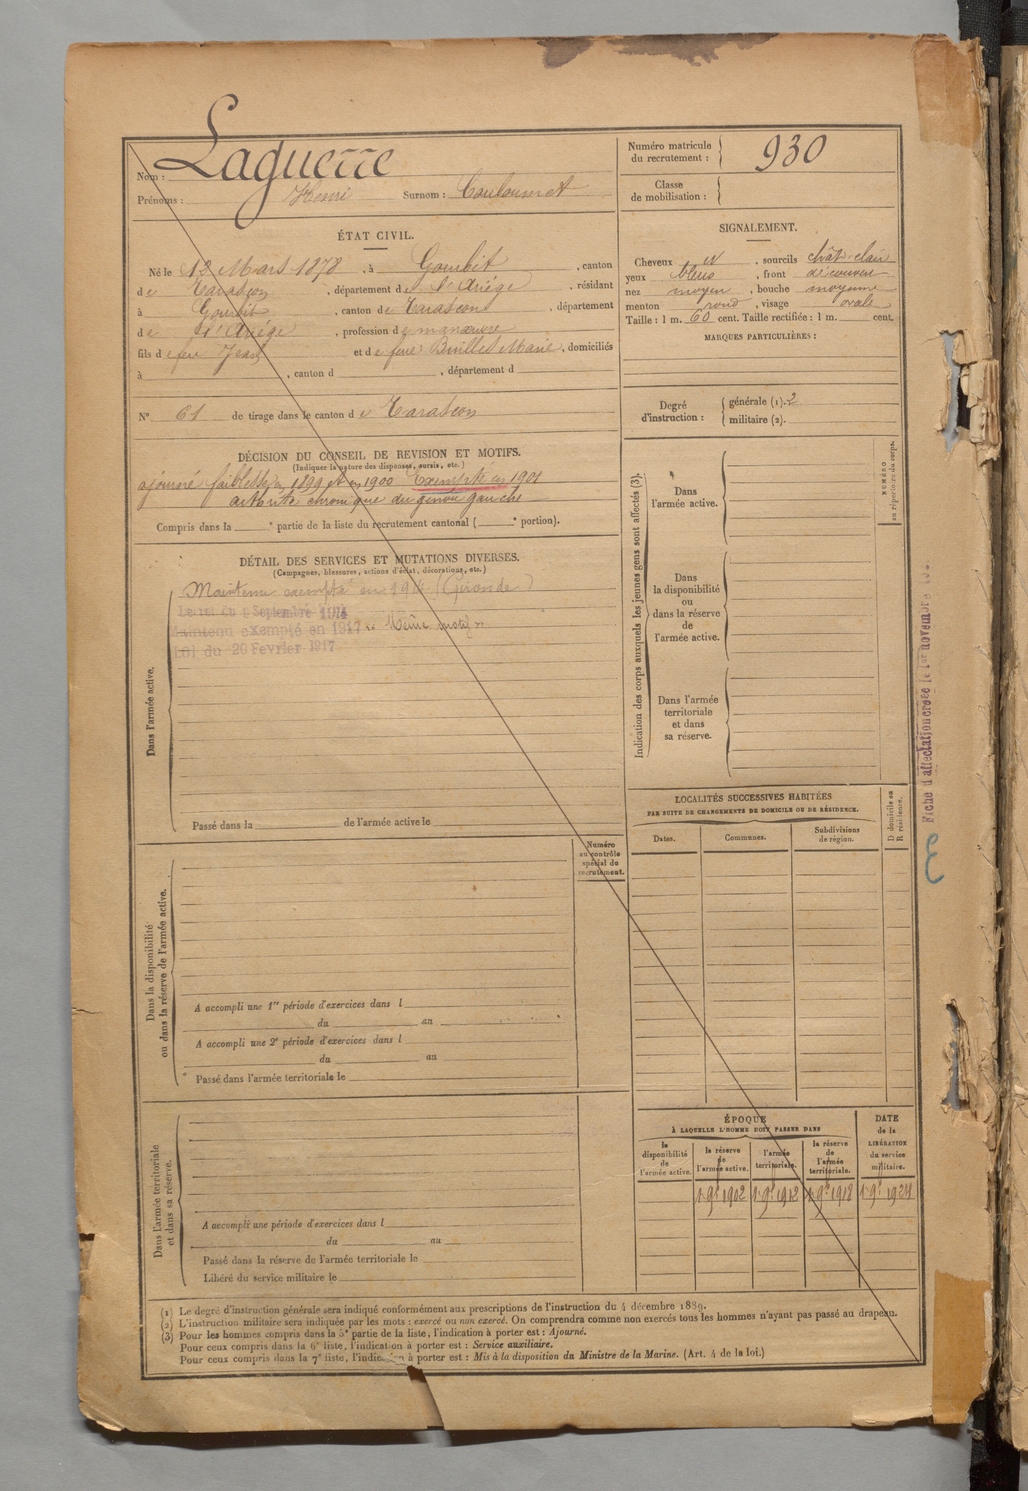 Nom : Laguerre
Prénoms : Henri Surnom : Couloumet
ÉTAT CIVIL.
Né le 12 Mars 1878, à Gourbit, canton
de Tarascon, département de l'Ariège, résidant
à Gourbit, canton de Tarascon, département
de l'Ariège, profession de manœuvre
fils de feu Jean et de feue Buillles Marie, domiciliés
à , canton d , département d
N° 61 de tirage dans le canton de Tarascon
DÉCISION DU CONSEIL DE REVISION ET MOTIFS.
(Indiquer la nature des dispenses, sursis, etc.)
ajourné faiblesse en 1899 et en 1900 Exempté en 1901
arthrite chronique du genou gauche
Compris dans la e partie de la liste du recrutement cantonal ( e portion).
DÉTAIL DES SERVICES ET MUTATIONS DIVERSES.
(Campagnes, blessures, actions d'éclat, décorations, etc.)
Dans l'armée active.
Maintenu exempté en 1914 (Gironde)
Décret du 9 Septembre 1914
Maintenu exempté en 1917 "Même motif"
Loi du 20 Fevrier 1917
Passé dans la de l'armée active le
Numéro
au contrôle
spécial du
recrutement.
Dans la disponibilité
ou dans la réserve de l'armée active.
A accompli une 1re période d'exercices dans l
du au
A accompli une 2e période d'exercices dans l
du au
Passé dans l'armée territoriale le
Dans l'armée territoriale
et dans sa réserve.
A accompli une période d'exercices dans l
du au
Passé dans la réserve de l'armée territoriale le
Libéré du service militaire le
Numéro matricule
du recrutement : 930
Classe
de mobilisation :
SIGNALEMENT.
Cheveux et, sourcils chât. clair
yeux bleus, front découvert
nez moyen, bouche moyenne
menton rond, visage ovale
Taille : 1 m. 60 cent. Taille rectifiée : 1 m. cent.
MARQUES PARTICULIÈRES :
Degré
d'instruction :
générale (1). 2
militaire (2).
Indication des corps auxquels les jeunes gens sont affectés (3).
Dans
l'armée active.
NUMÉRO
au répertoire du corps.
Dans
la disponibilité
ou
dans la réserve
de
l'armée active.
Dans l'armée
territoriale
et dans
sa réserve.
LOCALITÉS SUCCESSIVES HABITÉES
PAR SUITE DE CHANGEMENTS DE DOMICILE OU DE RÉSIDENCE.
Dates.
Communes.
Subdivisions
de région.
D domicile ou
R résidence.
ÉPOQUE
À LAQUELLE L'HOMME DOIT PASSER DANS
la
disponibilité
de
l'armée active.
la réserve
de
l'armée active.
l'armée
territoriale.
la réserve
de
l'armée
territoriale.
DATE
de la
LIBÉRATION
du service
militaire.
1er 9bre 1902 1er 9bre 1912 1er 9bre 1918 1er 9bre 1924
Fiche d'affectation créée le 1er novembre
(1) Le degré d'instruction générale sera indiqué conformément aux prescriptions de l'instruction du 4 décembre 1889.
(2) L'instruction militaire sera indiquée par les mots : exercé ou non exercé. On comprendra comme non exercés tous les hommes n'ayant pas passé au drapeau.
(3) Pour les hommes compris dans la 5e partie de la liste, l'indication à porter est : Ajourné.
Pour ceux compris dans la 6e liste, l'indication à porter est : Service auxiliaire.
Pour ceux compris dans la 7e liste, l'indication à porter est : Mis à la disposition du Ministre de la Marine. (Art. 4 de la loi.)